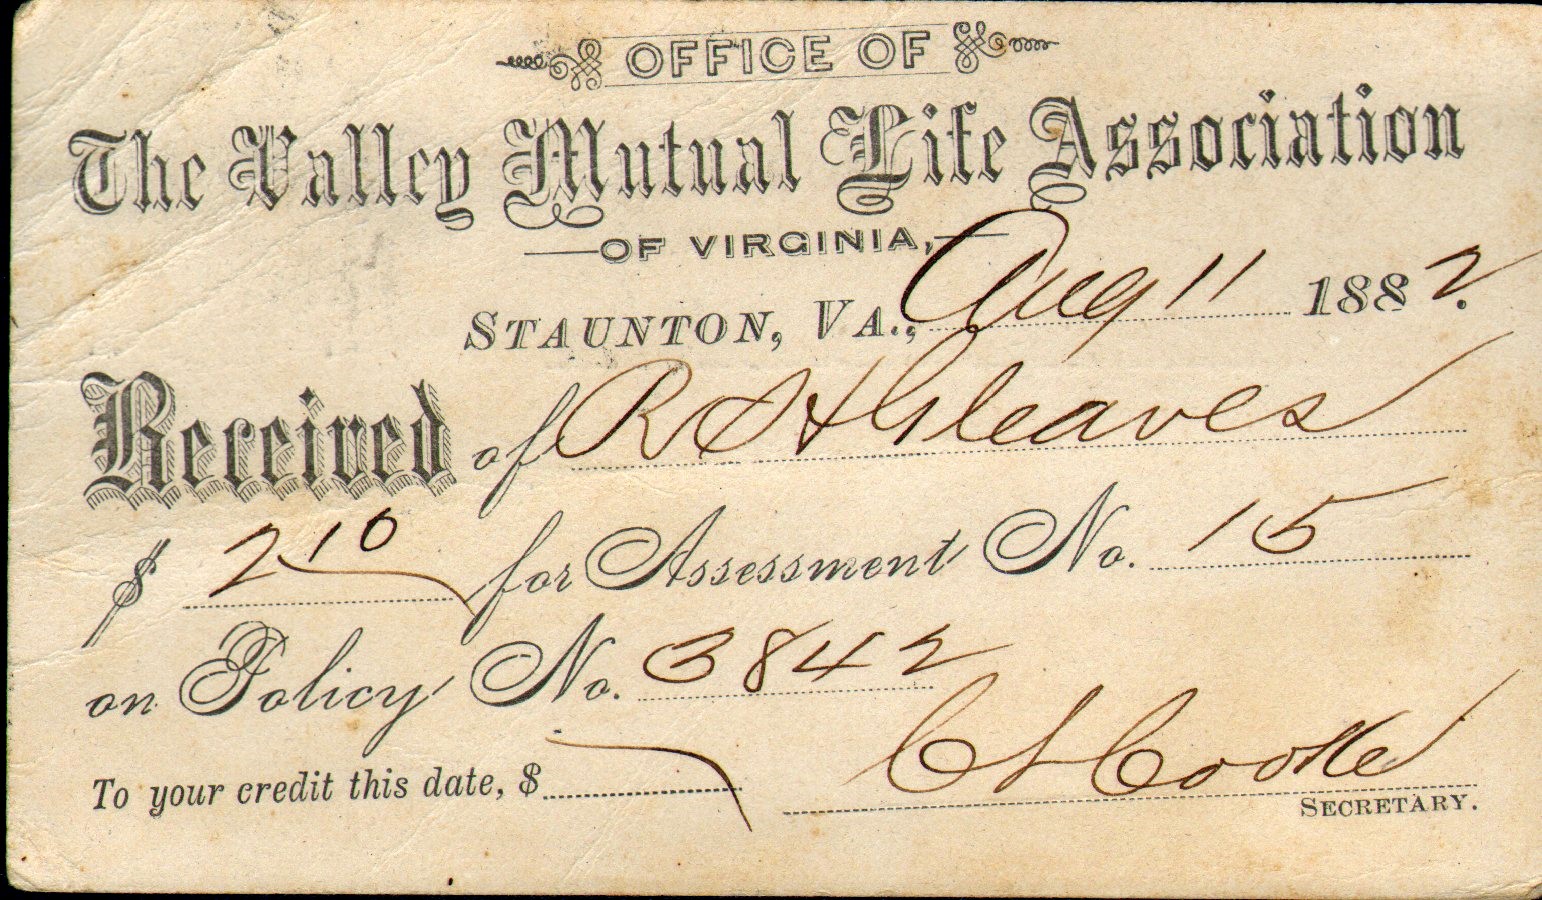 OFFICE OF
The Valley Mutual Life Association
OF VIRGINIA,
STAUNTON, VA., Aug 11 1882.
Received of R S H Gleaves
$ 2 10 for Assessment No. 15
on Policy No. 3842
To your credit this date, $
C L Cooke
SECRETARY.